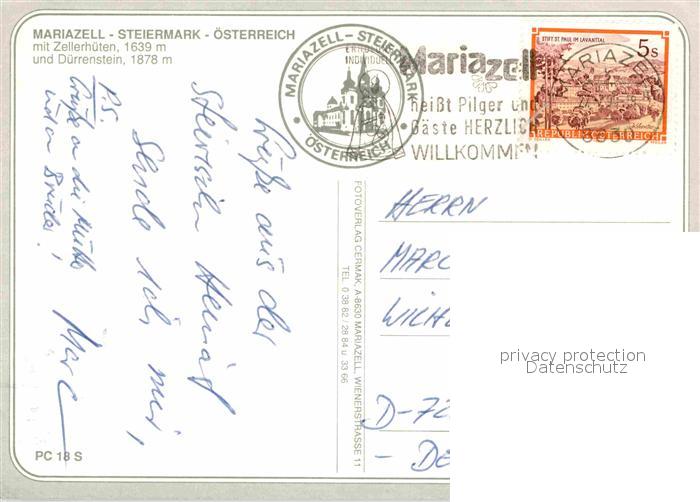 MARIAZELL - STEIERMARK - ÖSTERREICH
mit Zellerhüten, 1639 m
und Dürrenstein, 1878 m
MARIAZELL – STEIERMARK
ÖSTERREICH
Mariazell
heißt Pilger und
Gäste HERZLICH
WILLKOMMEN
STIFT ST. PAUL IM LAVANTTAL
5s
REPUBLIK ÖSTERREICH
MARIAZELL
8630
Grüße aus der
Steirischen Heimat
Sende ich mir,
Marc
P.S.
Grüße an die Mutter
und an Bruder!
FOTOVERLAG CERMAK, A-8630 MARIAZELL, WIENERSTRASSE 11
TEL. 0 38 82 / 28 84 u. 33 66
HERRN
MARC
WILH
D-72
- DE
privacy protection
Datenschutz
PC 18 S